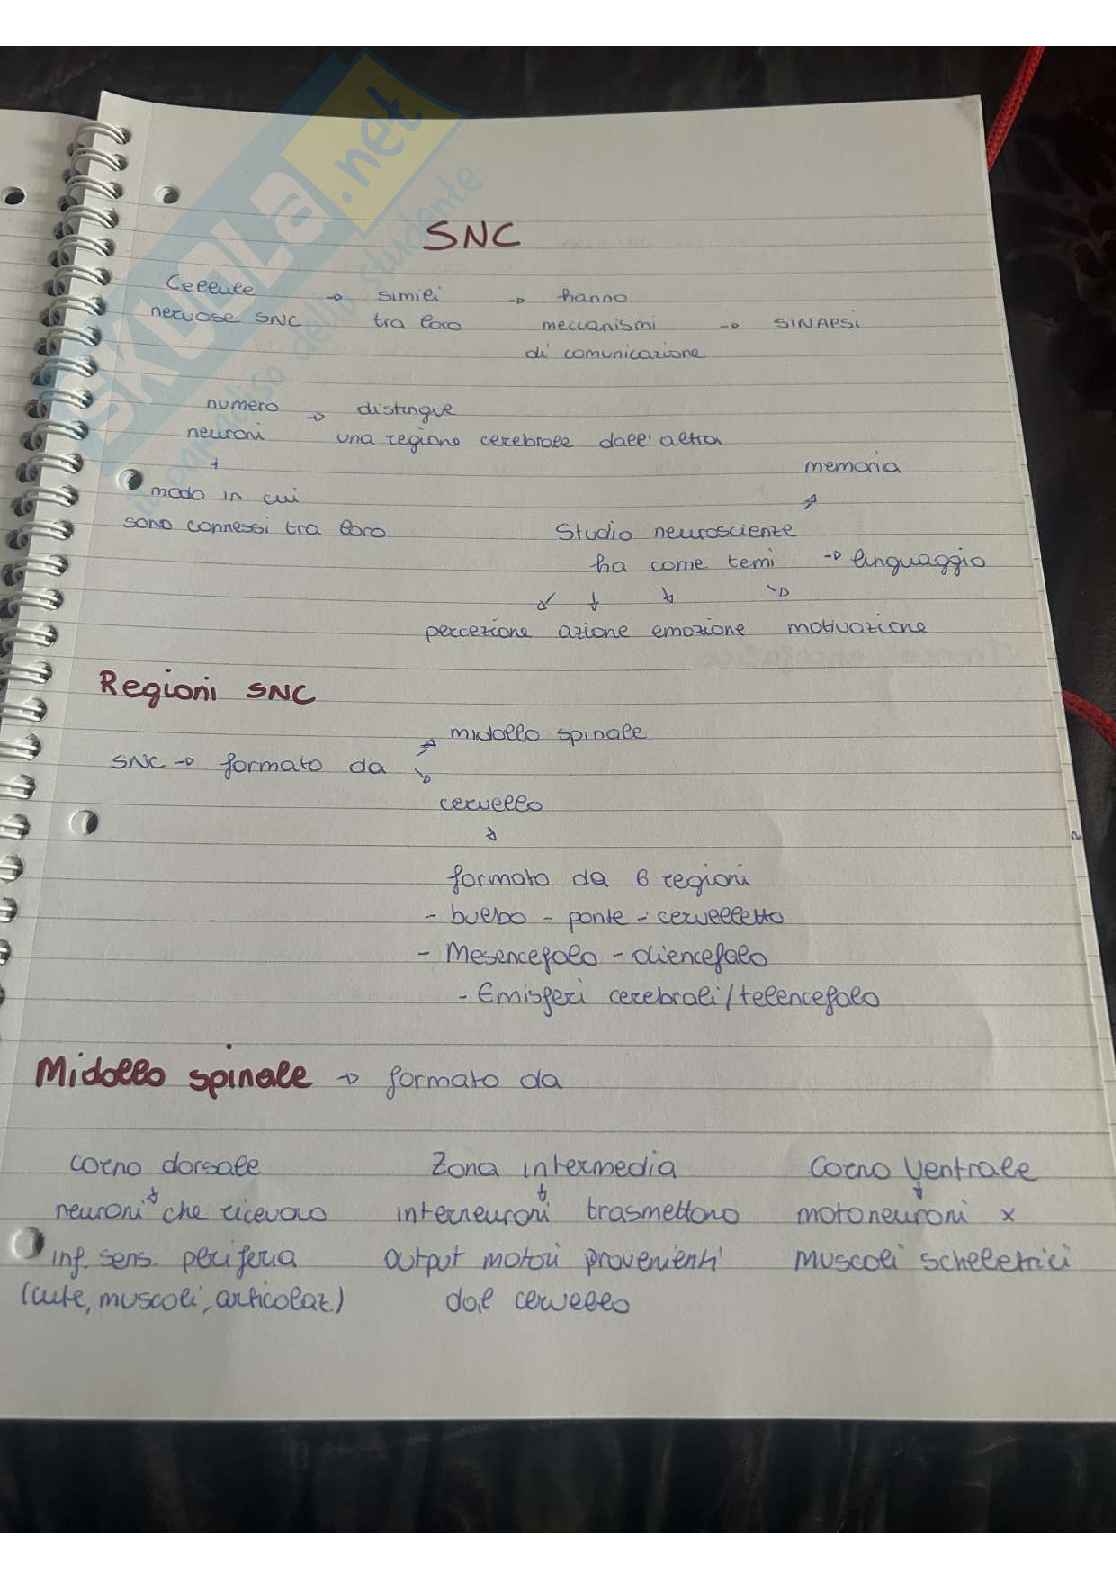 SKUOLA.net
SNC
Cellule → simili → hanno
nervose SNC tra loro meccanismi → SINAPSI
di comunicazione
numero → distingue
neuroni una regione cerebrale dall'altra
+
modo in cui
sono connessi tra loro
memoria
Studio neuroscienze
ha come temi → linguaggio
percezione azione emozione motivazione
Regioni SNC
midollo spinale
SNC → formato da
cervello
formato da 6 regioni
- bulbo - ponte - cervelletto
- Mesencefalo - diencefalo
- Emisferi cerebrali/telencefalo
Midollo spinale → formato da
corno dorsale Zona intermedia Corno Ventrale
neuroni che ricevono interneuroni trasmettono motoneuroni x
inf. sens. periferia output motori provenienti muscoli scheletrici
(cute, muscoli, articolaz.) dal cervello